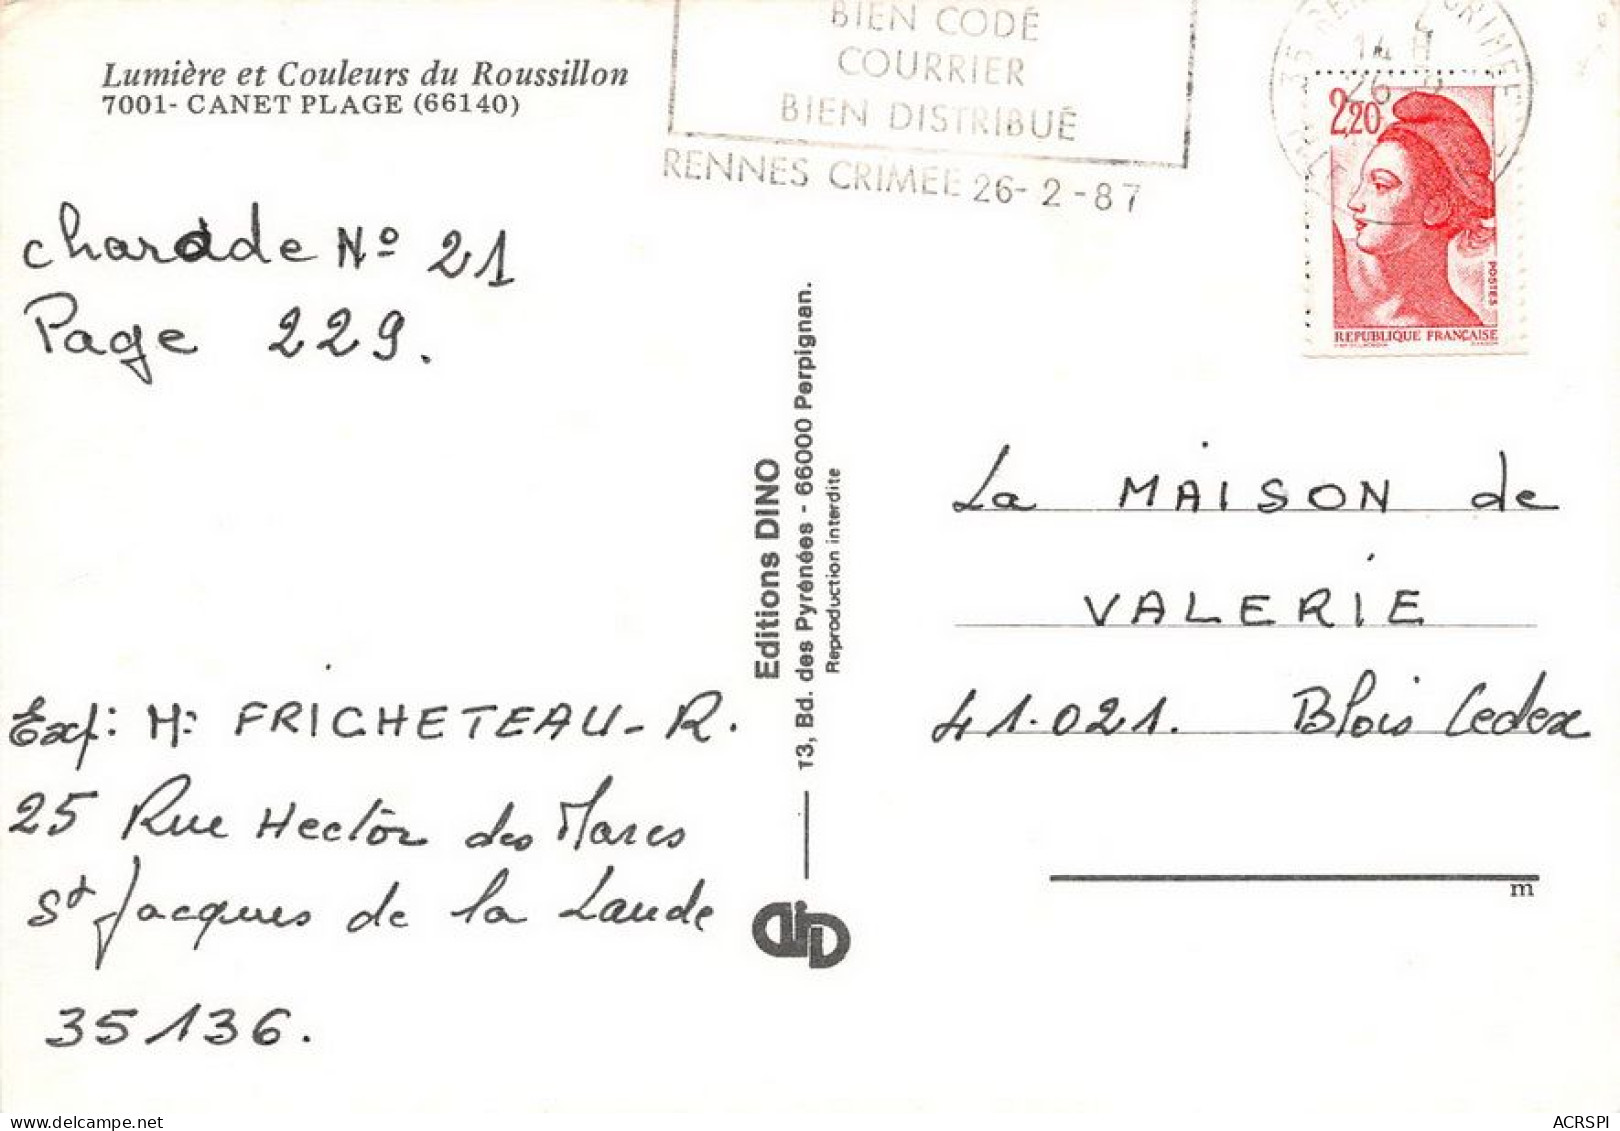 Lumière et Couleurs du Roussillon
7001- CANET PLAGE (66140)
BIEN CODÉ
COURRIER
BIEN DISTRIBUÉ
RENNES CRIMEE 26-2-87
14 H
26
2,20
POSTES
REPUBLIQUE FRANÇAISE
charade Nº 21
Page 229.
Exp: Mr FRICHETEAU-R.
25 Rue Hector des Mares
St Jacques de la Lande
35136.
Editions DINO
13, Bd. des Pyrénées - 66000 Perpignan.
Reproduction interdite
La MAISON de
VALERIE
41.021. Blois Cedex
m
www.delcampe.net
ACRSPI